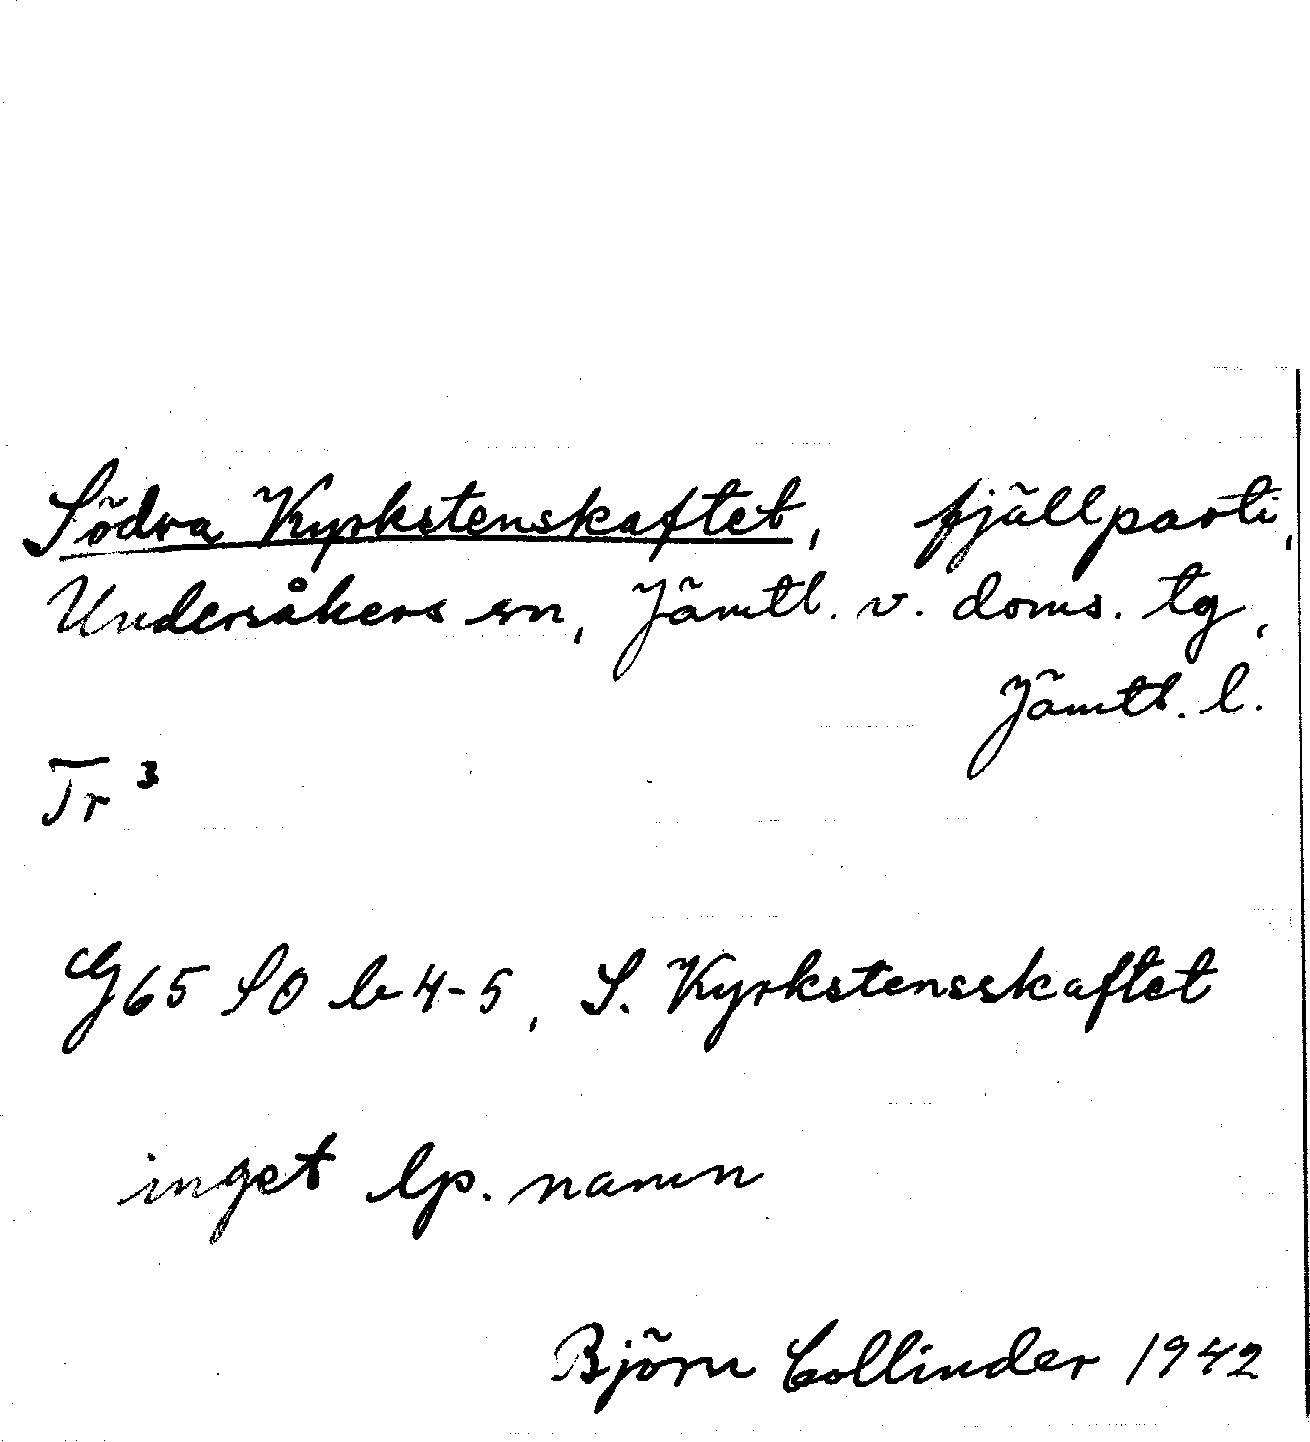 Södra Kyrkstenskaftet, fjällparti,
Undersåkers sn, Jämtl. v. doms. tg,
Jämtl. l.
Tr³
G65 SO b 4-5, S. Kyrkstensskaftet
inget lp. namn
Björn Collinder 1942